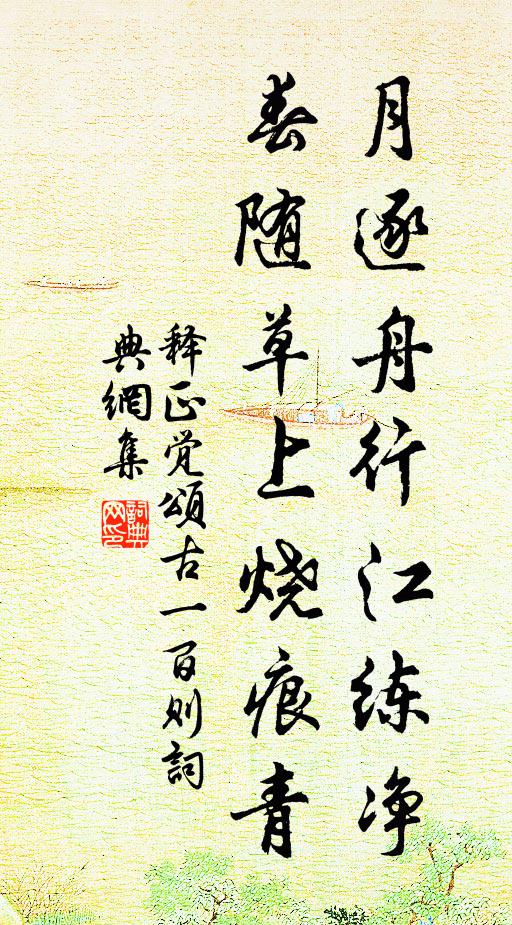 月逐舟行江练净
春随草上烧痕青
释正觉颂古一百则詞
典網集
詞典网印